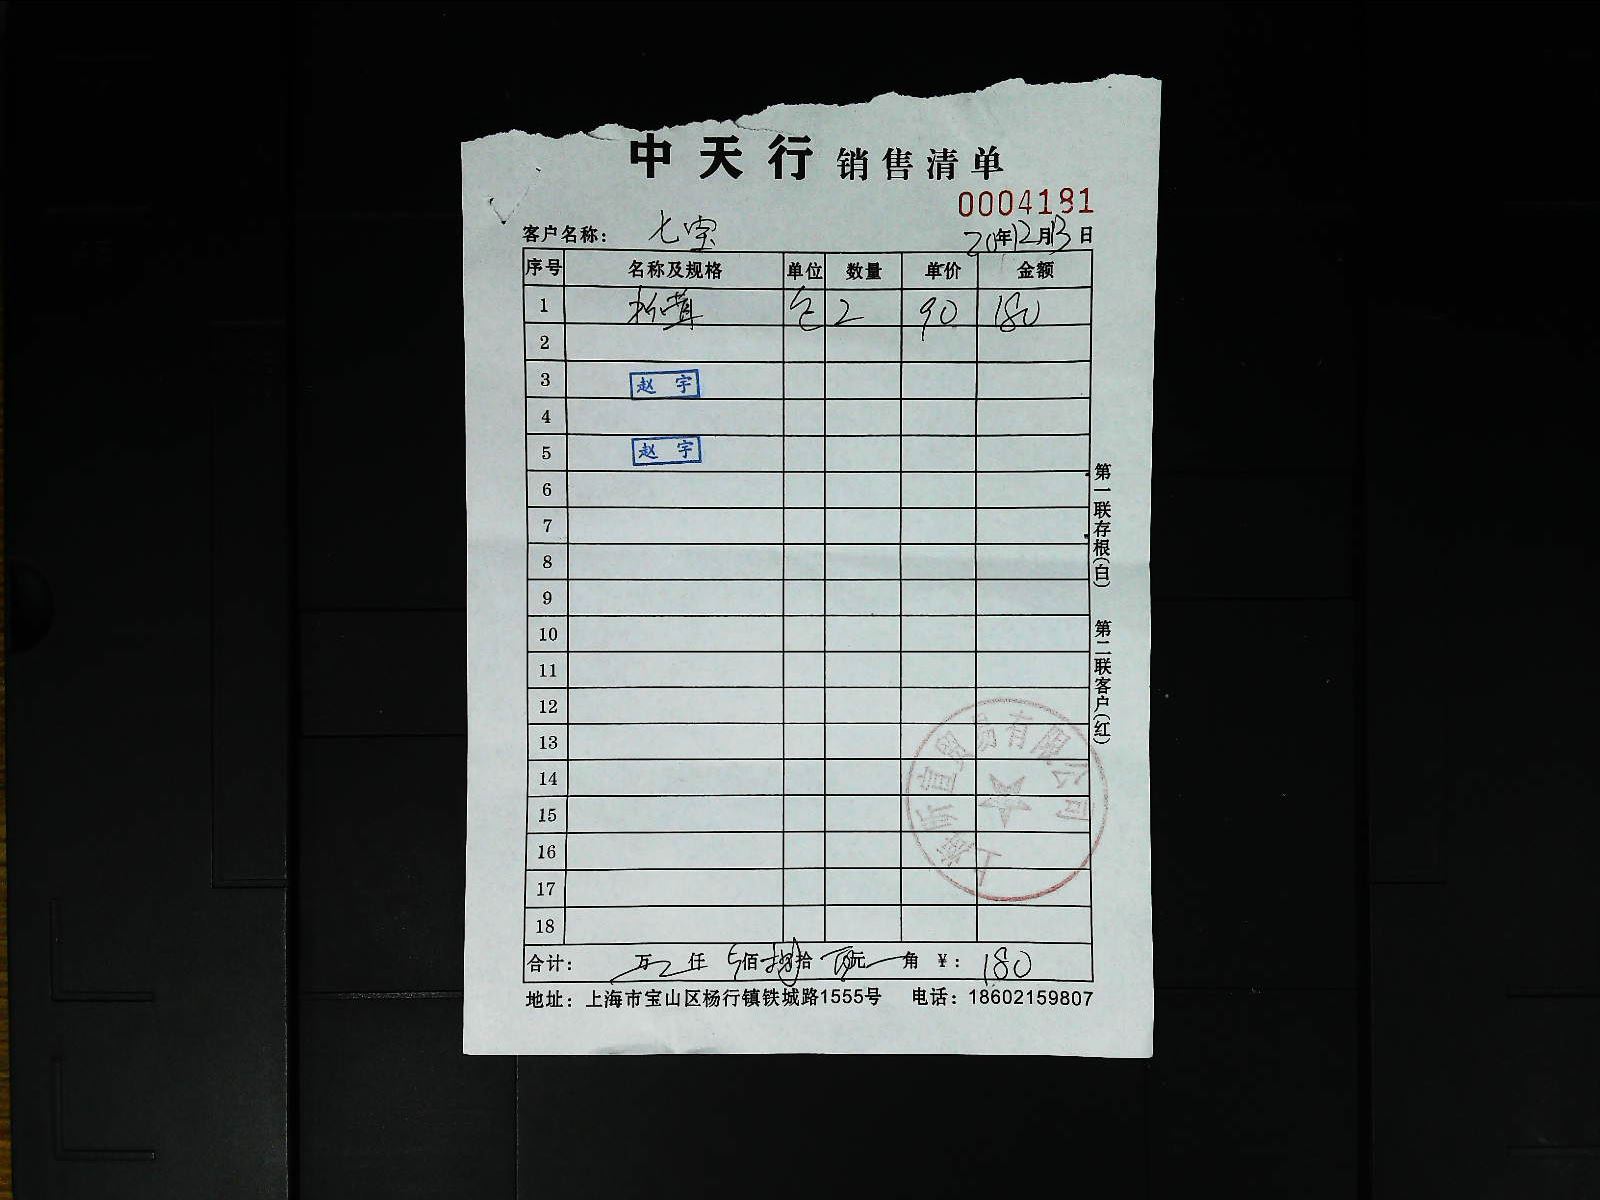 中天行 销售清单
0004181
客户名称： 七宝 20年12月13日
序号 名称及规格 单位 数量 单价 金额
1 包 2 90 180
2
3 赵 宇
4
5 赵 宇
6
7
8
9
10
11
12
13
14
15
16
17
18
合计： 万 仟 佰 捌拾 元 角 ¥：180
地址：上海市宝山区杨行镇铁城路1555号 电话：18602159807
第一联存根(白) 第二联客户(红)
贸易有限公司